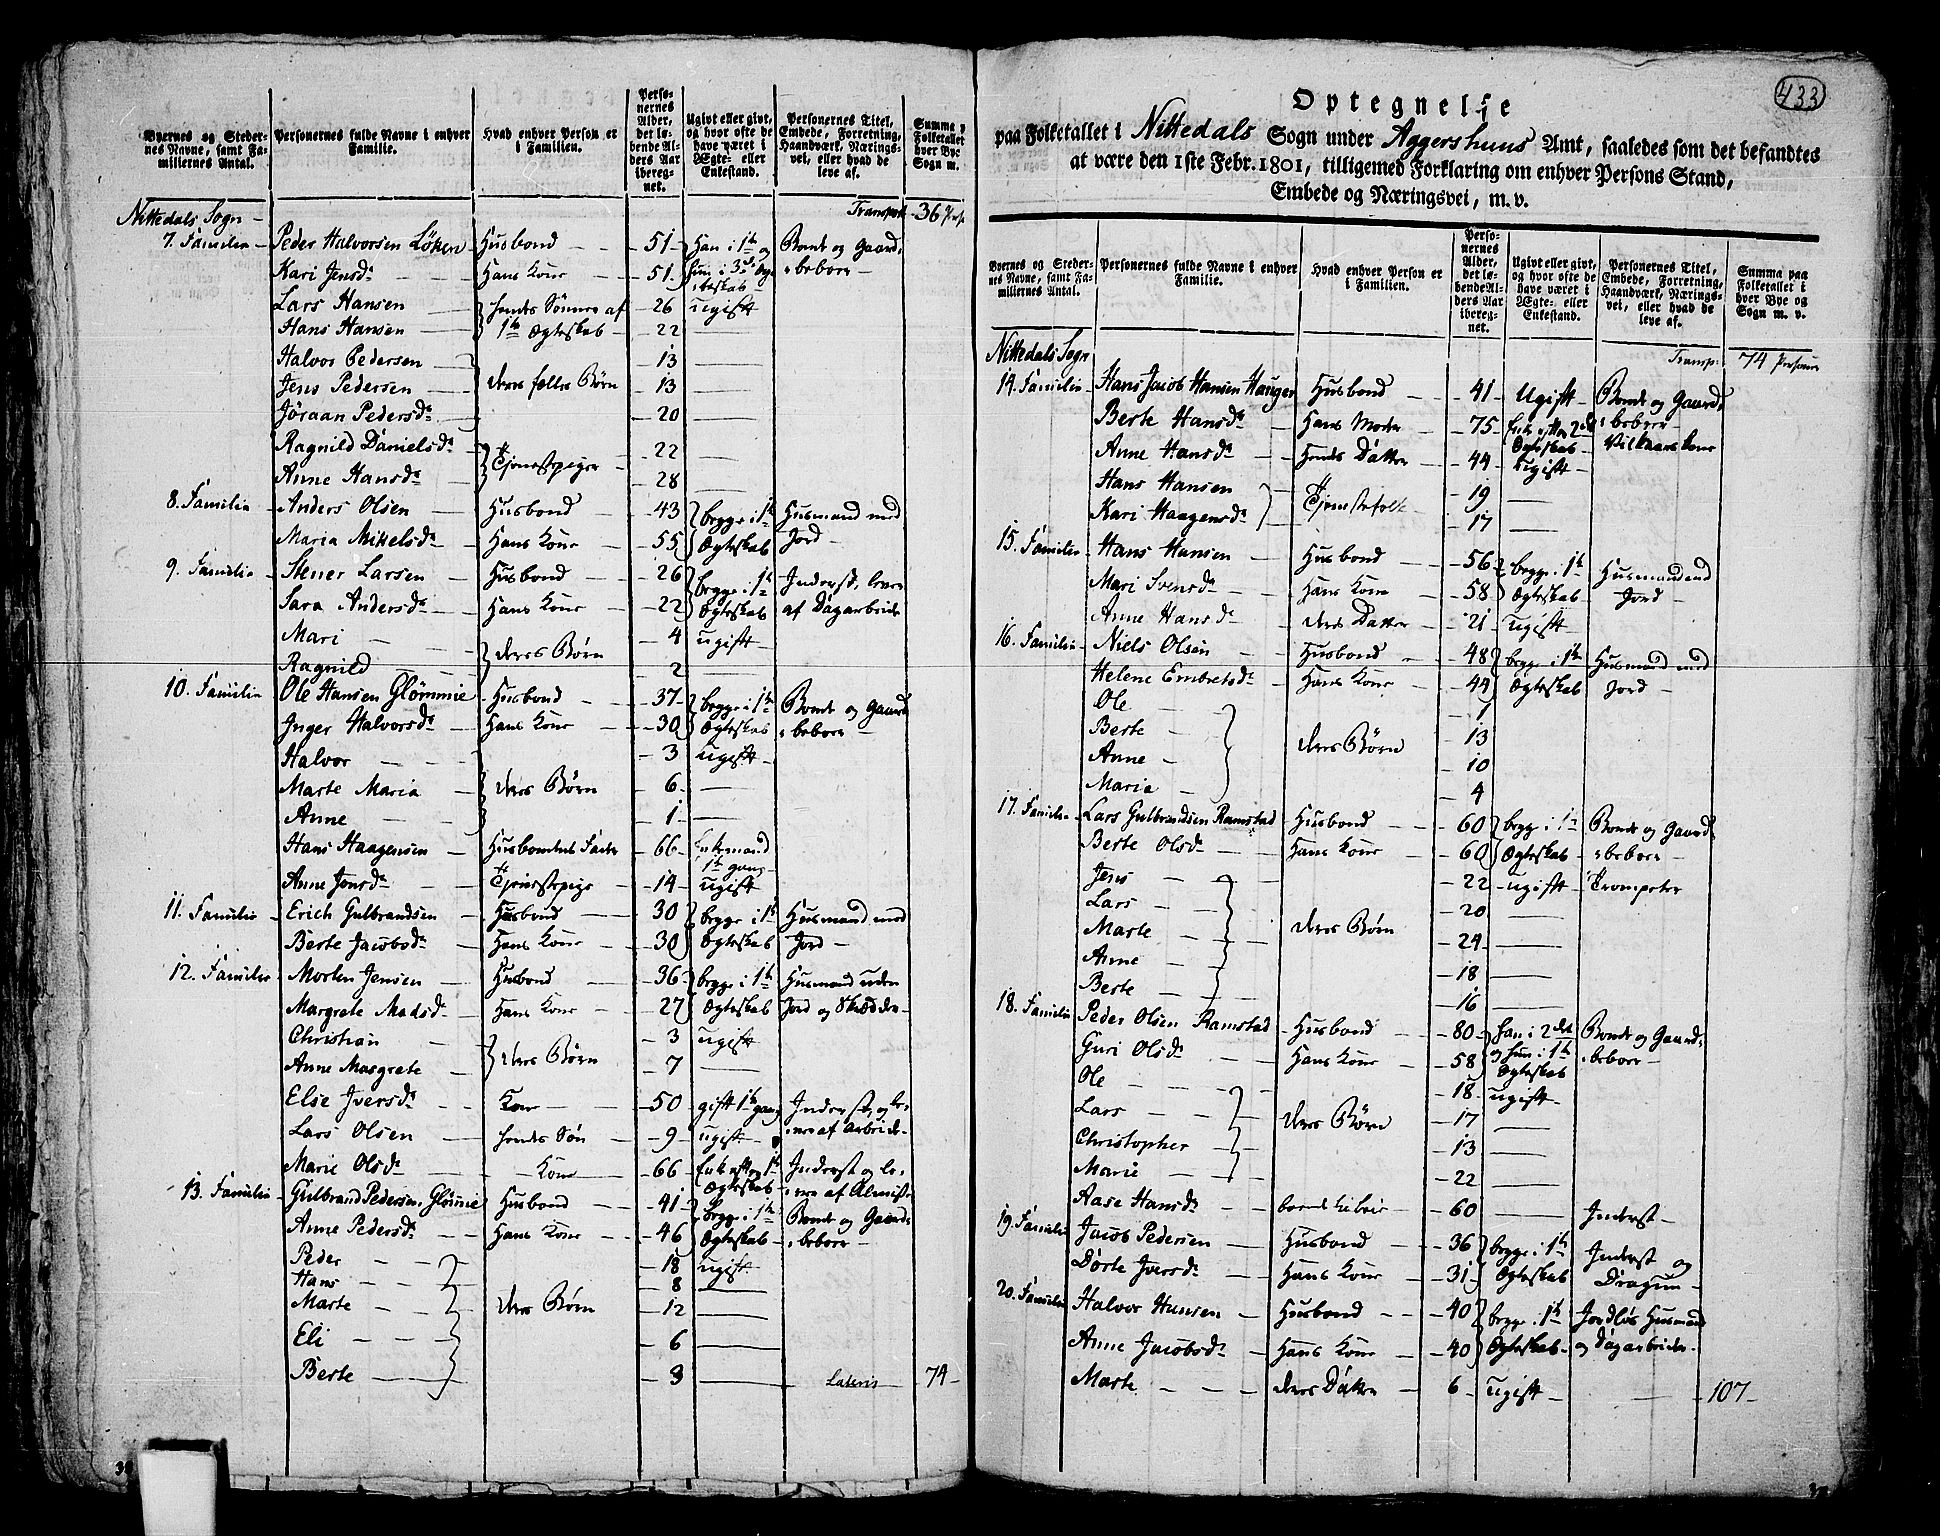 Byernes og Steder-
nes Navne, samt Fa-
miliernes Antal.
Personernes fulde Navne i enhver
Familie.
Hvad enhver Person er
i Familien.
Perso-
nernes
Alder,
det lø-
bende Al-
ders Aar
iberegnet.
Ugivt eller givt,
og hvor ofte de
have været i
Ægte- eller
Enkestand.
Personernes Titel,
Embede, Forretning,
Haandværk, Nærings-
vei, eller hvad de
leve af.
Nittedals Sogn Transport 36
7. Familie Peder Halvorsen Löken Husbond 51 Han i 1te og Bonde og Gaard-
Kari Jensdr Hans Kone 51 hun i 3die beboer
Lars Hansen hendes Sönner af 26 ugift
Hans Hansen 1te Ægteskab 22
Halvor Pedersen 13
Jens Pedersen deres fælles Börn 13
Jöraan Pedersdr 20
Ragnild Danielsdr Tjenestepiger 22
Anne Hansdr 28
8. Familie Anders Olsen Husbond 43 begge i 1te Husmand med
Maria Mikkelsdr Hans Kone 55 Ægteskab Jord
9. Familie Stener Larsen Husbond 26 begge i 1te Inderst, lever
Sara Andersdr Hans Kone 22 Ægteskab af Dagarbeide
Mari 4 ugift
Ragnild deres Börn 2
10. Familie Ole Hansen Glömmie Husbond 37 begge i 1te Bonde og Gaard
Inger Halvorsdr Hans Kone 30 Ægteskab beboer
Halvor 3 ugift
Marte Maria deres Börn 6
Anne 1
Hans Haagensen Husbondens Fader 66 Enkemand
1te gang
Anne Jonsdr Tjenestepige 14 ugift
11. Familie Erich Gulbrandsen Husbond 30 begge i 1te Husmand med
Berte Jacobsdr Hans Kone 30 Ægteskab Jord
12. Familie Morten Jensen Husbond 36 begge i 1te Husmand uden
Margrete Madsdr Hans Kone 27 Ægteskab Jord og Skrædder
Christian 3 ugift
Anne Margrete deres Börn 7
Else Iversdr Kone 50 gift 1te gang Inderst, og le-
Lars Olsen hendes Sön 9 ugift ver af Arbeide
Marie Olsdr Kone 66 Enke efter 1te Inderst og le-
Ægteskab ver af Almisse
13. Familie Gulbrand Pedersen Glömmie Husbond 41 begge i 1te Bonde og Gaard-
Anne Pedersdr Hans Kone 46 Ægteskab beboer
Peder 18 ugift
Hans 8
Marte deres Börn 12
Eli 6
Berte 3 Lateris 74
433
Optegnelse
paa Folketallet i Nittedals Sogn under Aggershuus Amt, saaledes som det befandtes
at være den 1ste Febr. 1801, tilligemed Forklaring om enhver Persons Stand,
Embede og Næringsvei, m. v.
Byernes og Steder-
nes Navne, samt Fa-
miliernes Antal.
Personernes fulde Navne i enhver
Familie.
Hvad enhver Person er
i Familien.
Perso-
nernes
Alder,
det lø-
bende Al-
ders Aar
iberegnet.
Ugivt eller givt,
og hvor ofte de
have været i
Ægte- eller
Enkestand.
Personernes Titel,
Embede, Forretning,
Haandværk, Nærings-
vei, eller hvad de
leve af.
Summa paa
Folketallet i
hver Bye og
Sogn m. v.
Nittedals Sogn Transp: 74 Personer
14. Familie Hans Jacob Hansen Hauger Husbond 41 Ugift Bonde og Gaard-
Berte Hansdr Hans Moder 75 Enke efter 2det beboer
Anne Hansdr Hendes Datter 44 Ægteskab Vilkaarskone
ugift
Hans Hansen Tjenestefolk 19
Kari Haagensdr 17
15. Familie Hans Hansen Husbond 56 begge i 1te Husmand med
Mari Svensdr Hans Kone 58 Ægteskab Jord
Anne Hansdr deres Datter 21 ugift
16. Familie Niels Olsen Husbond 48 begge i 1te Husmand med
Helene Embretsdr Hans Kone 44 Ægteskab Jord
Ole 1
Berte deres Börn 13
Anne 10
Maria 4
17. Familie Lars Gulbrandsen Ramstad Husbond 60 begge i 1te Bonde og Gaard
Berte Olsdr Hans Kone 60 Ægteskab beboer
Jens 22 ugift Trompeter
Lars 20
Marte deres Börn 24
Anne 18
Berte 16
18. Familie Peder Olsen Ramstad Husbond 80 han i 2det Bonde og Gaard-
Guri Olsdr Hans Kone 58 og hun i 1te beboer
Ægteskab
Ole 18 ugift
Lars deres Börn 17
Christopher 13
Marie 22
Aase Hansdr 60 Inderst
19. Familie Jacob Pedersen Husbond 36 begge i 1te Inderst og
Dörte Iversdr Hans Kone 31 Ægteskab Dragun
20. Familie Halvor Hansen Husbond 40 begge i 1te Jordlös Husmand
Anne Jacobsdr Hans Kone 40 Ægteskab og Dagarbeider
Marte deres Datter 6 ugift 107